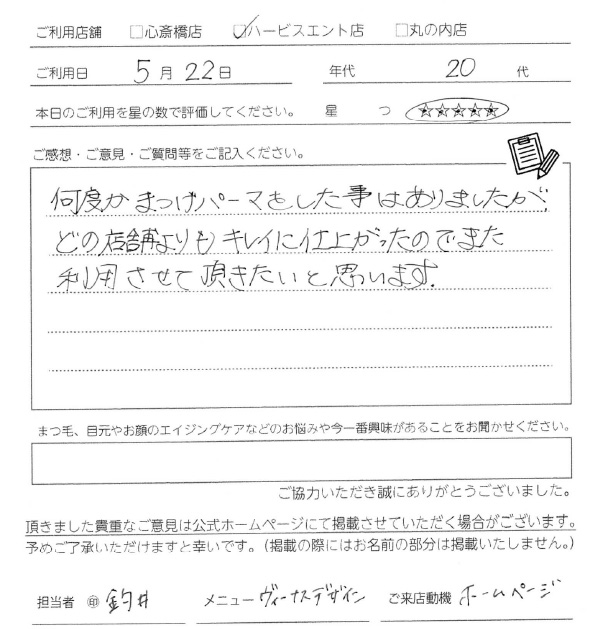 ご利用店舗 □心斎橋店 ☑ハービスエント店 □丸の内店
ご利用日 5月22日 年代 20代
本日のご利用を星の数で評価してください。 星 つ ☆☆☆☆☆
ご感想・ご意見・ご質問等をご記入ください。
何度かまつげパーマをした事はありましたが、
どの店舗よりもキレイに仕上がったのでまた
利用させて頂きたいと思います。
まつ毛、目元やお顔のエイジングケアなどのお悩みや今一番興味があることをお聞かせください。
ご協力いただき誠にありがとうございました。
頂きました貴重なご意見は公式ホームページにて掲載させていただく場合がございます。
予めご了承いただけますと幸いです。（掲載の際にはお名前の部分は掲載いたしません。）
担当者 ㊞ 釣井 メニュー ヴィーナスデザイン ご来店動機 ホームページ